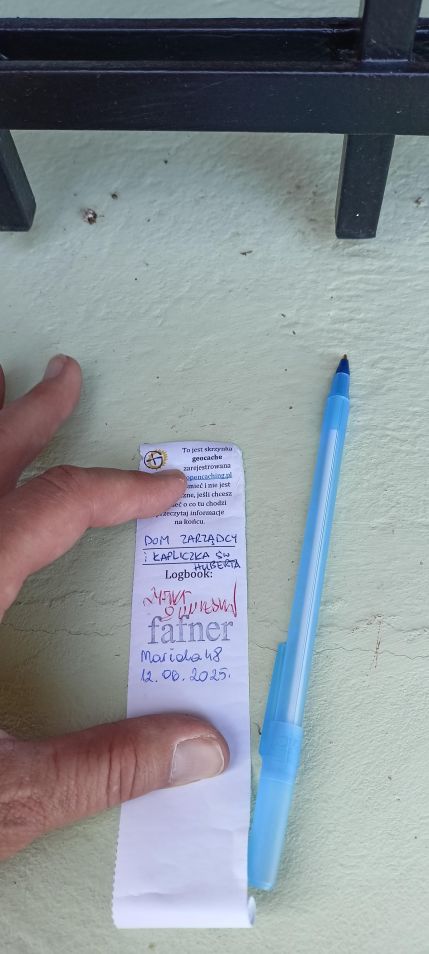 To jest skrzynka
geocache
zarejestrowana
opencaching.pl
mieć i nie jest
zne, jeśli chcesz
eć o co tu chodzi
przeczytaj informacje
na końcu.
DOM ZARZĄDCY
i KAPLICZKA ŚW
HUBERTA
Logbook:
fafner
Mariola48
12.08.2025.